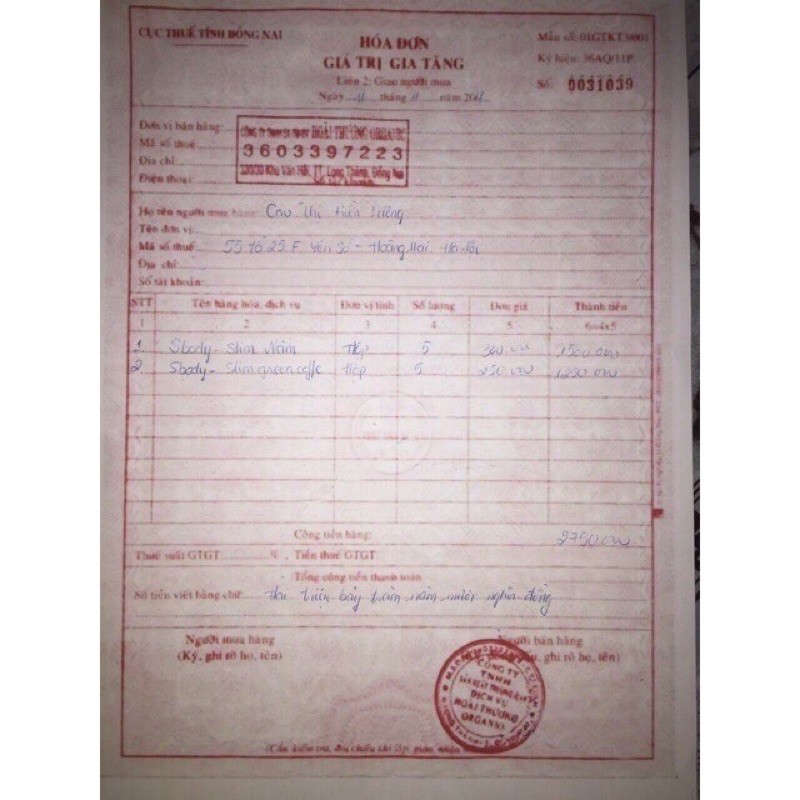 CỤC THUẾ TỈNH ĐỒNG NAI
HÓA ĐƠN
GIÁ TRỊ GIA TĂNG
Liên 2: Giao người mua
Ngày 11 tháng 11 năm 2018
Mẫu số: 01GTKT3/001
Ký hiệu: 36AQ/11P
Số: 0031039
Đơn vị bán hàng:
Mã số thuế:
Địa chỉ:
Điện thoại:
CÔNG TY TNHH HOÀI THƯƠNG ORGANIC
3603397223
Khu Văn Hải, TT. Long Thành, Đồng Nai
Họ tên người mua hàng: Cao Thị
Tên đơn vị:
Mã số thuế: 55 tổ 25 F. Yên Sở - Hoàng Mai. Hà Nội
Địa chỉ:
Số tài khoản:
STT Tên hàng hóa, dịch vụ Đơn vị tính Số lượng Đơn giá Thành tiền
1 2 3 4 5 6=4x5
1. Sbody - Slim Nấm Hộp 5 300.000 1500.000
2. Sbody - Slim green coffe Hộp 5 250.000 1250.000
Cộng tiền hàng: 2750.000
Thuế suất GTGT: %, Tiền thuế GTGT:
Tổng cộng tiền thanh toán
Số tiền viết bằng chữ: Hai triệu bảy trăm năm mươi nghìn đồng
Người mua hàng
(Ký, ghi rõ họ, tên)
Người bán hàng
ghi rõ họ, tên)
CÔNG TY
TNHH
DỊCH VỤ
HOÀI THƯƠNG
ORGANIC
(Cần kiểm tra, đối chiếu khi lập, giao, nhận